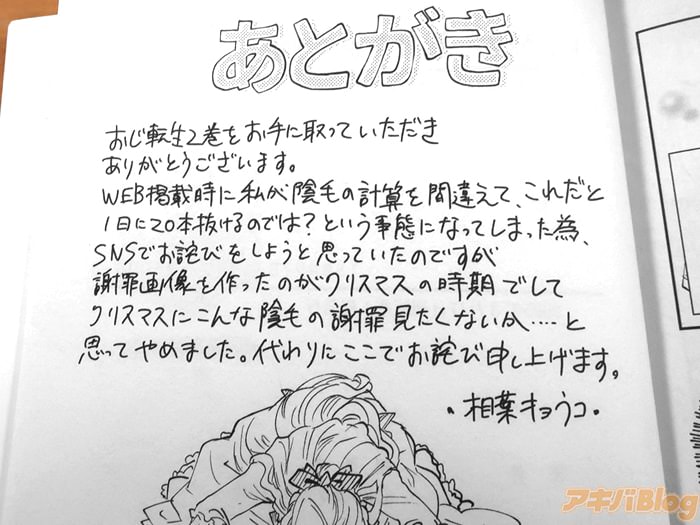 あとがき
おじ転生2巻をお手に取っていただき
ありがとうございます。
WEB掲載時に私が陰毛の計算を間違えて、これだと
1日に20本抜けるのでは?という事態になってしまった為、
SNSでお詫びをしようと思っていたのですが
謝罪画像を作ったのがクリスマスの時期でして
クリスマスにこんな陰毛の謝罪見たくないか‥‥と
思ってやめました。代わりにここでお詫び申し上げます。
・相葉キョウコ・
アキバBlog